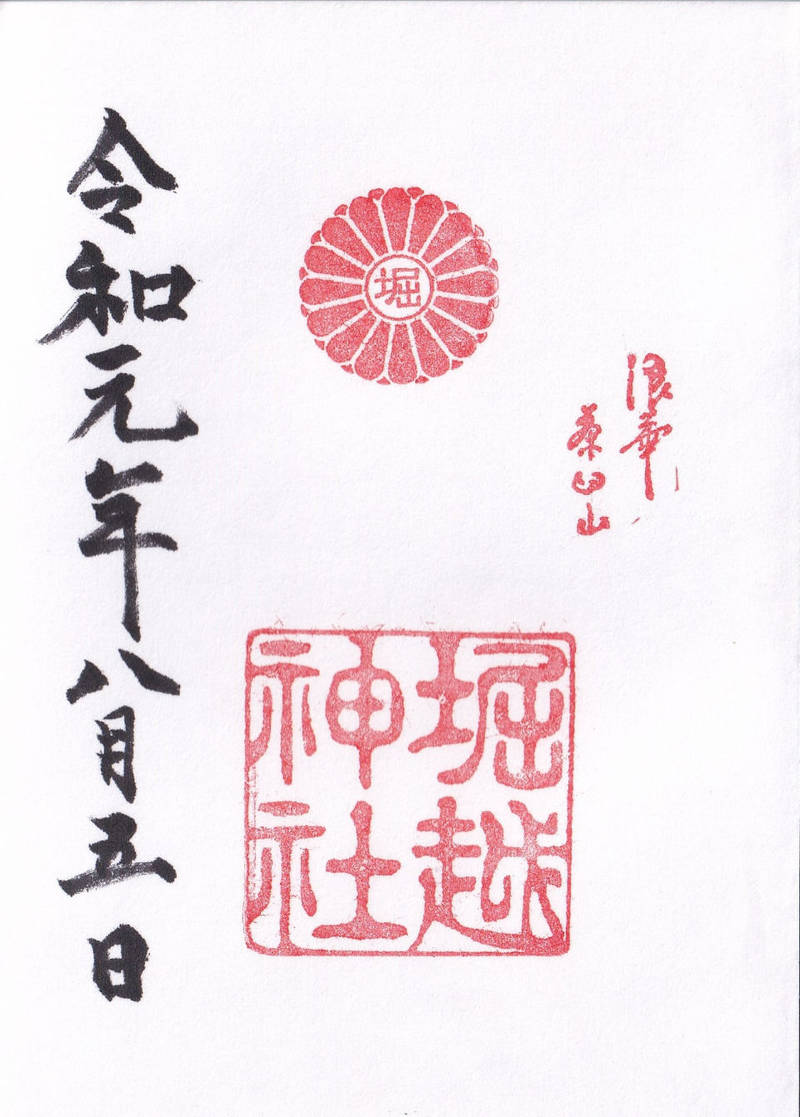 浪華
茶臼山
堀
堀越
神社
令和元年八月五日